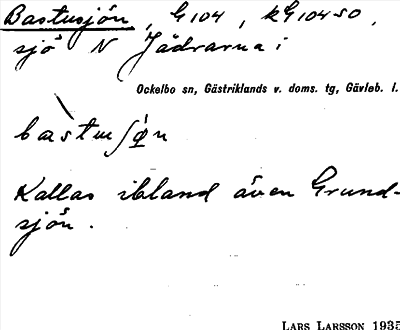 Bastusjön, G104, kG104SO,
sjö N Jädrarna i
Ockelbo sn, Gästriklands v. doms. tg, Gävleb. l.
Kallas ibland även Grund-
sjön.
LARS LARSSON 1935